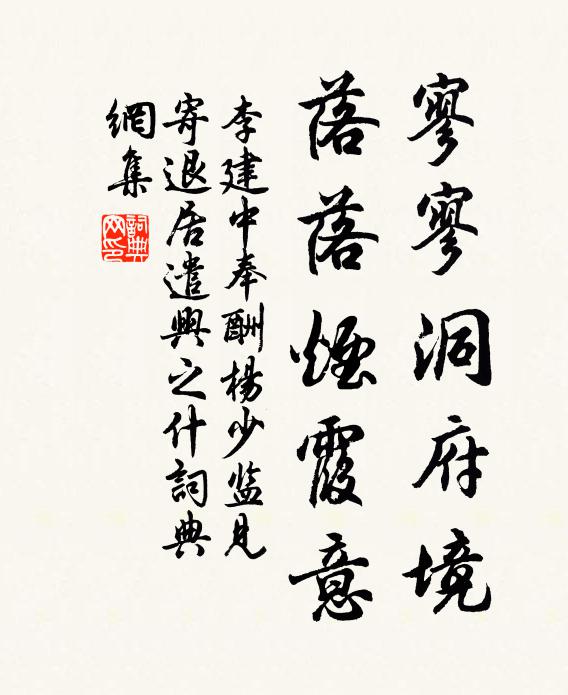 寥寥洞府境
落落煙霞意
李建中奉酬楊少监見
寄退居遣興之什詞典
網集
詞典
网印